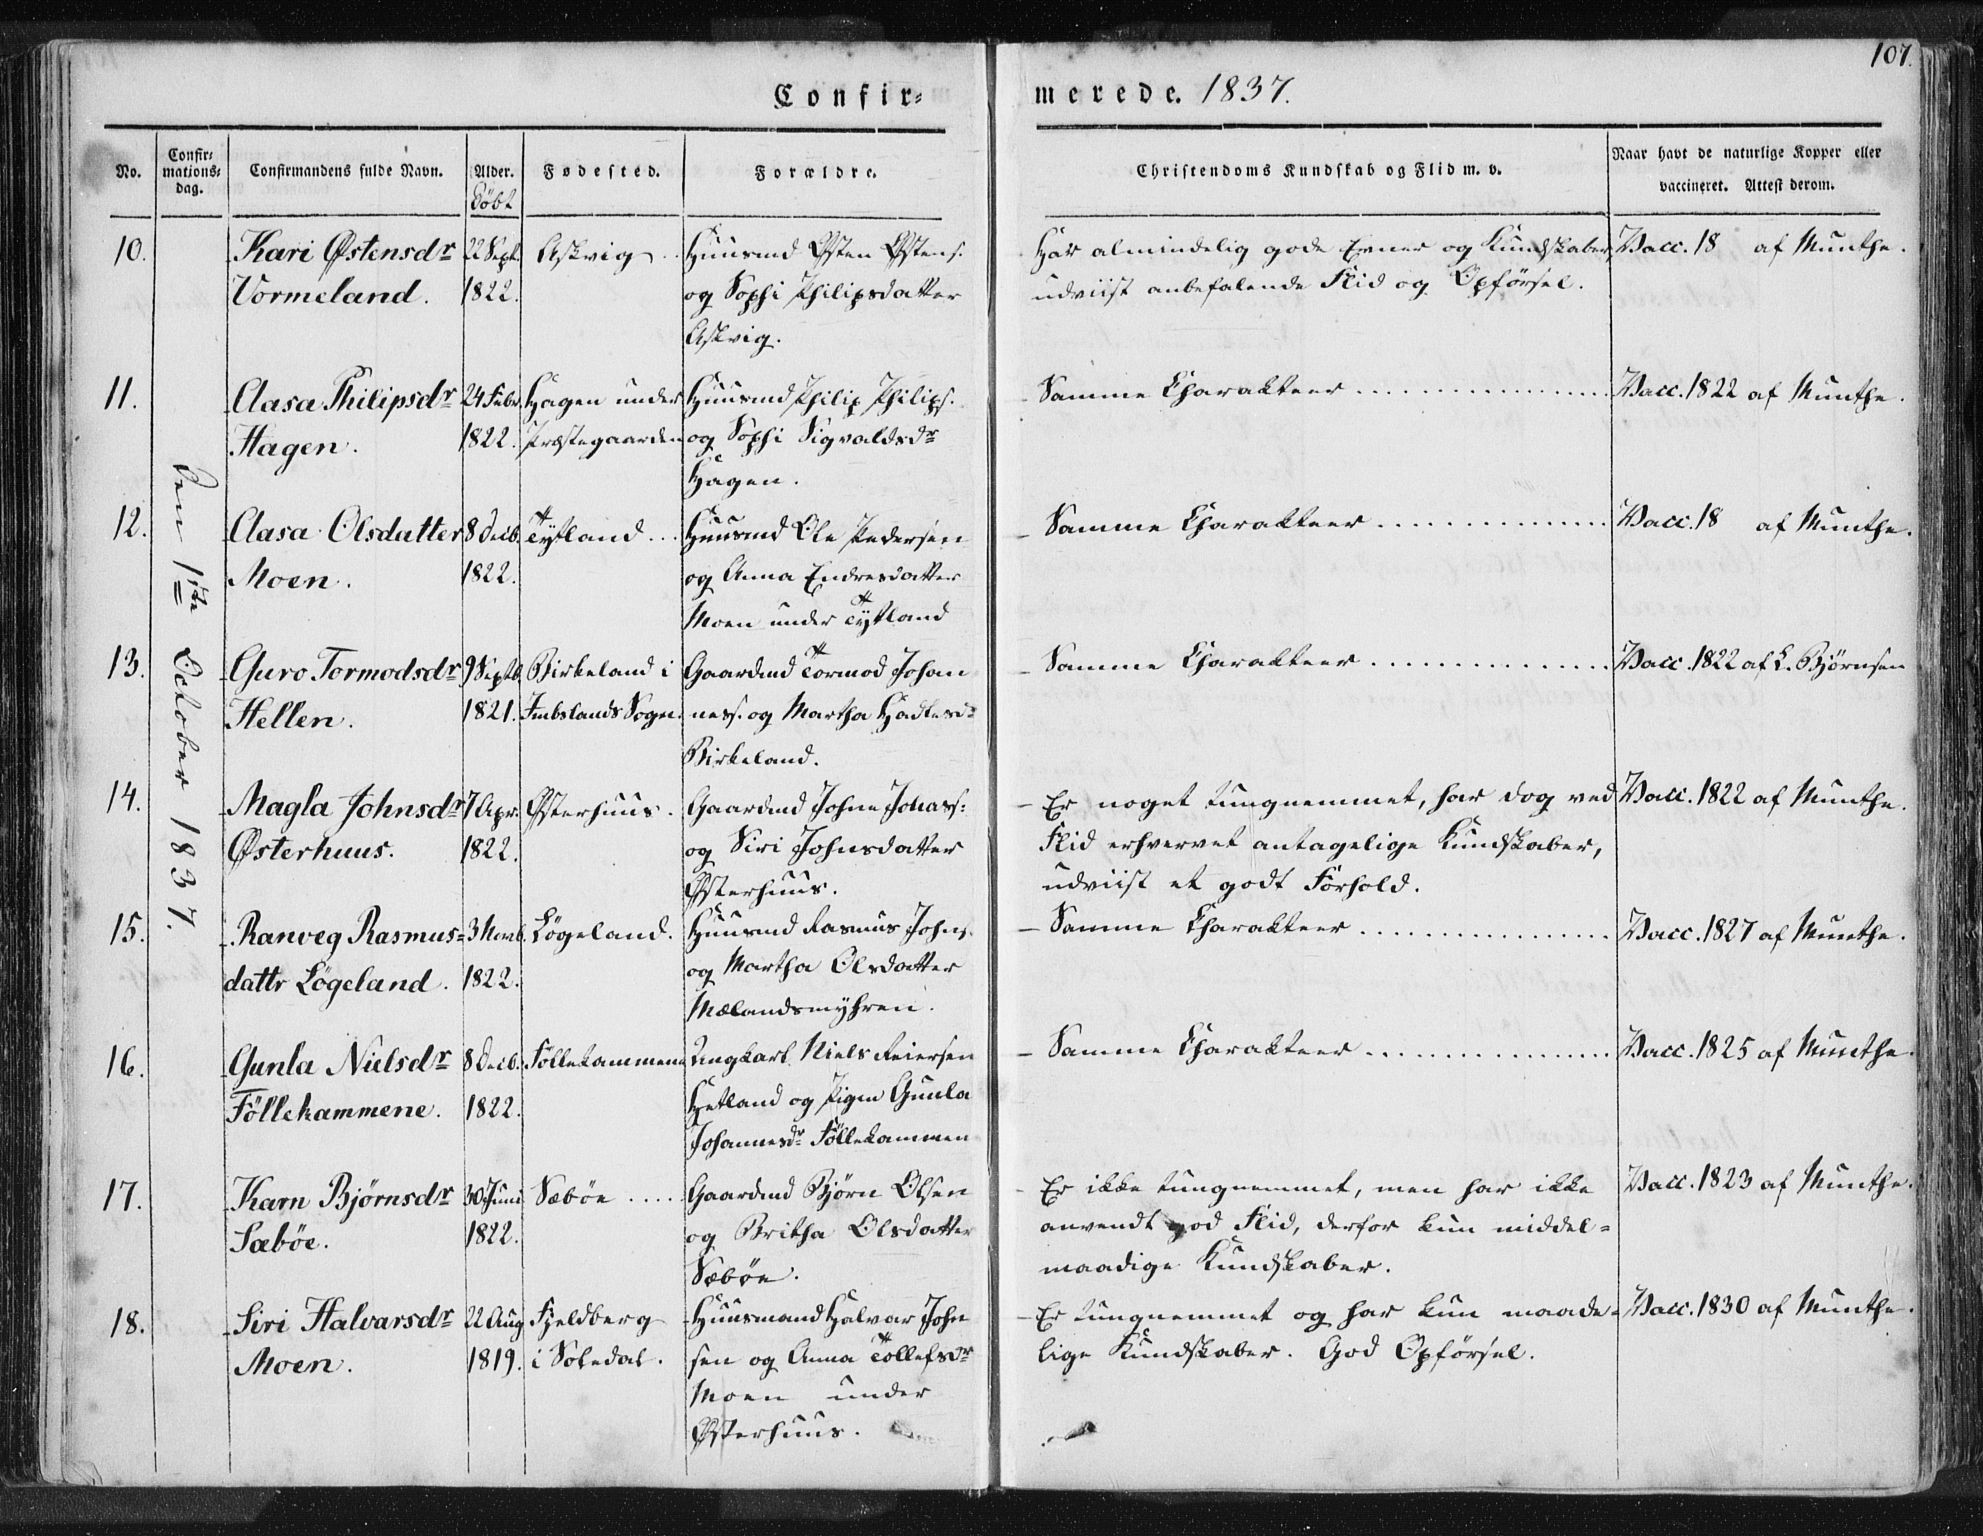 107.
Confir=
merede. 1837.
No.
Confir=
mations=
dag.
Confirmandens fulde Navn.
Alder.
Döbt
Fødested.
Forældre.
Christendoms Kundskab og Flid m. v.
Naar havt de naturlige Kopper eller
vaccineret. Attest derom.
Den 1ste October 1837.
10.
Kari Østensdr
Vormeland.
22 Sept.
1822.
Askvig ..
Huusmd Østen Østens.
og Sophi Philipsdatter
Askvig.
Har almindelig gode Evner og Kundskaber,
udviist anbefalende Flid og Opförsel.
Vacc. 18 af Munthe.
11.
Aasa Philipsdr
Hagen.
24 Febr.
1822.
Hagen under
Præstegaarden
Huusmd Philip Philips.
og Sophi Sigvaldsdr
Hagen.
Samme Charakteer
Vacc. 1822 af Munthe.
12.
Aasa Olsdatter
Moen.
8 Decb.
1822.
Tytland ...
Huusmd Ole Pedersen
og Anna Endresdatter
Moen under Tytland
Samme Charakteer
Vacc. 18 af Munthe.
13.
Guro Tormodsdr
Hellen.
9 Septb.
1821.
Birkeland i
Imbslands Sogn.
Gaardmd Tormod Johan
ness. og Martha Hadlesd=
Birkeland.
Samme Charakteer
Vacc. 1822 af L. Bjørnsen
14.
Magla Johnsdr
Østerhuus.
7 Apr.
1822.
Østerhuus.
Gaardmd Johne Johass:
og Siri Johnsdatter
Østerhuus.
Er noget tungnemmet, har dog ved
Flid erhvervet antagelige Kundskaber,
udviist et godt Forhold.
Vacc. 1822 af Munthe.
15.
Ranveg Rasmus=
dattr Løgeland.
3 Novb.
1822.
Løgeland.
Huusmd Rasmus Johns.
og Martha Olsdatter
Mælandsmyhren.
Samme Charakteer
Vacc. 1827 af Munthe.
16.
Gunla Nielsdr
Föllekammene.
8 Decb.
1822.
Föllekammene
Ungkarl Niels Reiersen
Hetland og Pigen Gunla
Johannesdr Föllekammen
Samme Charakteer
Vacc. 1825 af Munthe.
17.
Karn Bjørnsdr
Sæbøe.
30 Juni
1822.
Sæbøe .....
Gaardmd Bjørn Olsen
og Britha Olsdatter
Sæbøe.
Er ikke tungnemmet, men har ikke
anvendt god Flid, derfor kun middel=
maadige Kundskaber.
Vacc. 1823 af Munthe.
18.
Siri Halvarsdr
Moen.
22 Aug
1819.
Fjeldberg
i Soledal.
Huusmand Halvar John
sen og Anna Tollefsdr
Moen under
Østerhuus.
Er tungnemmet og har kun maade=
lige Kundskaber. God Opförsel.
Vacc. 1830 af Munthe.